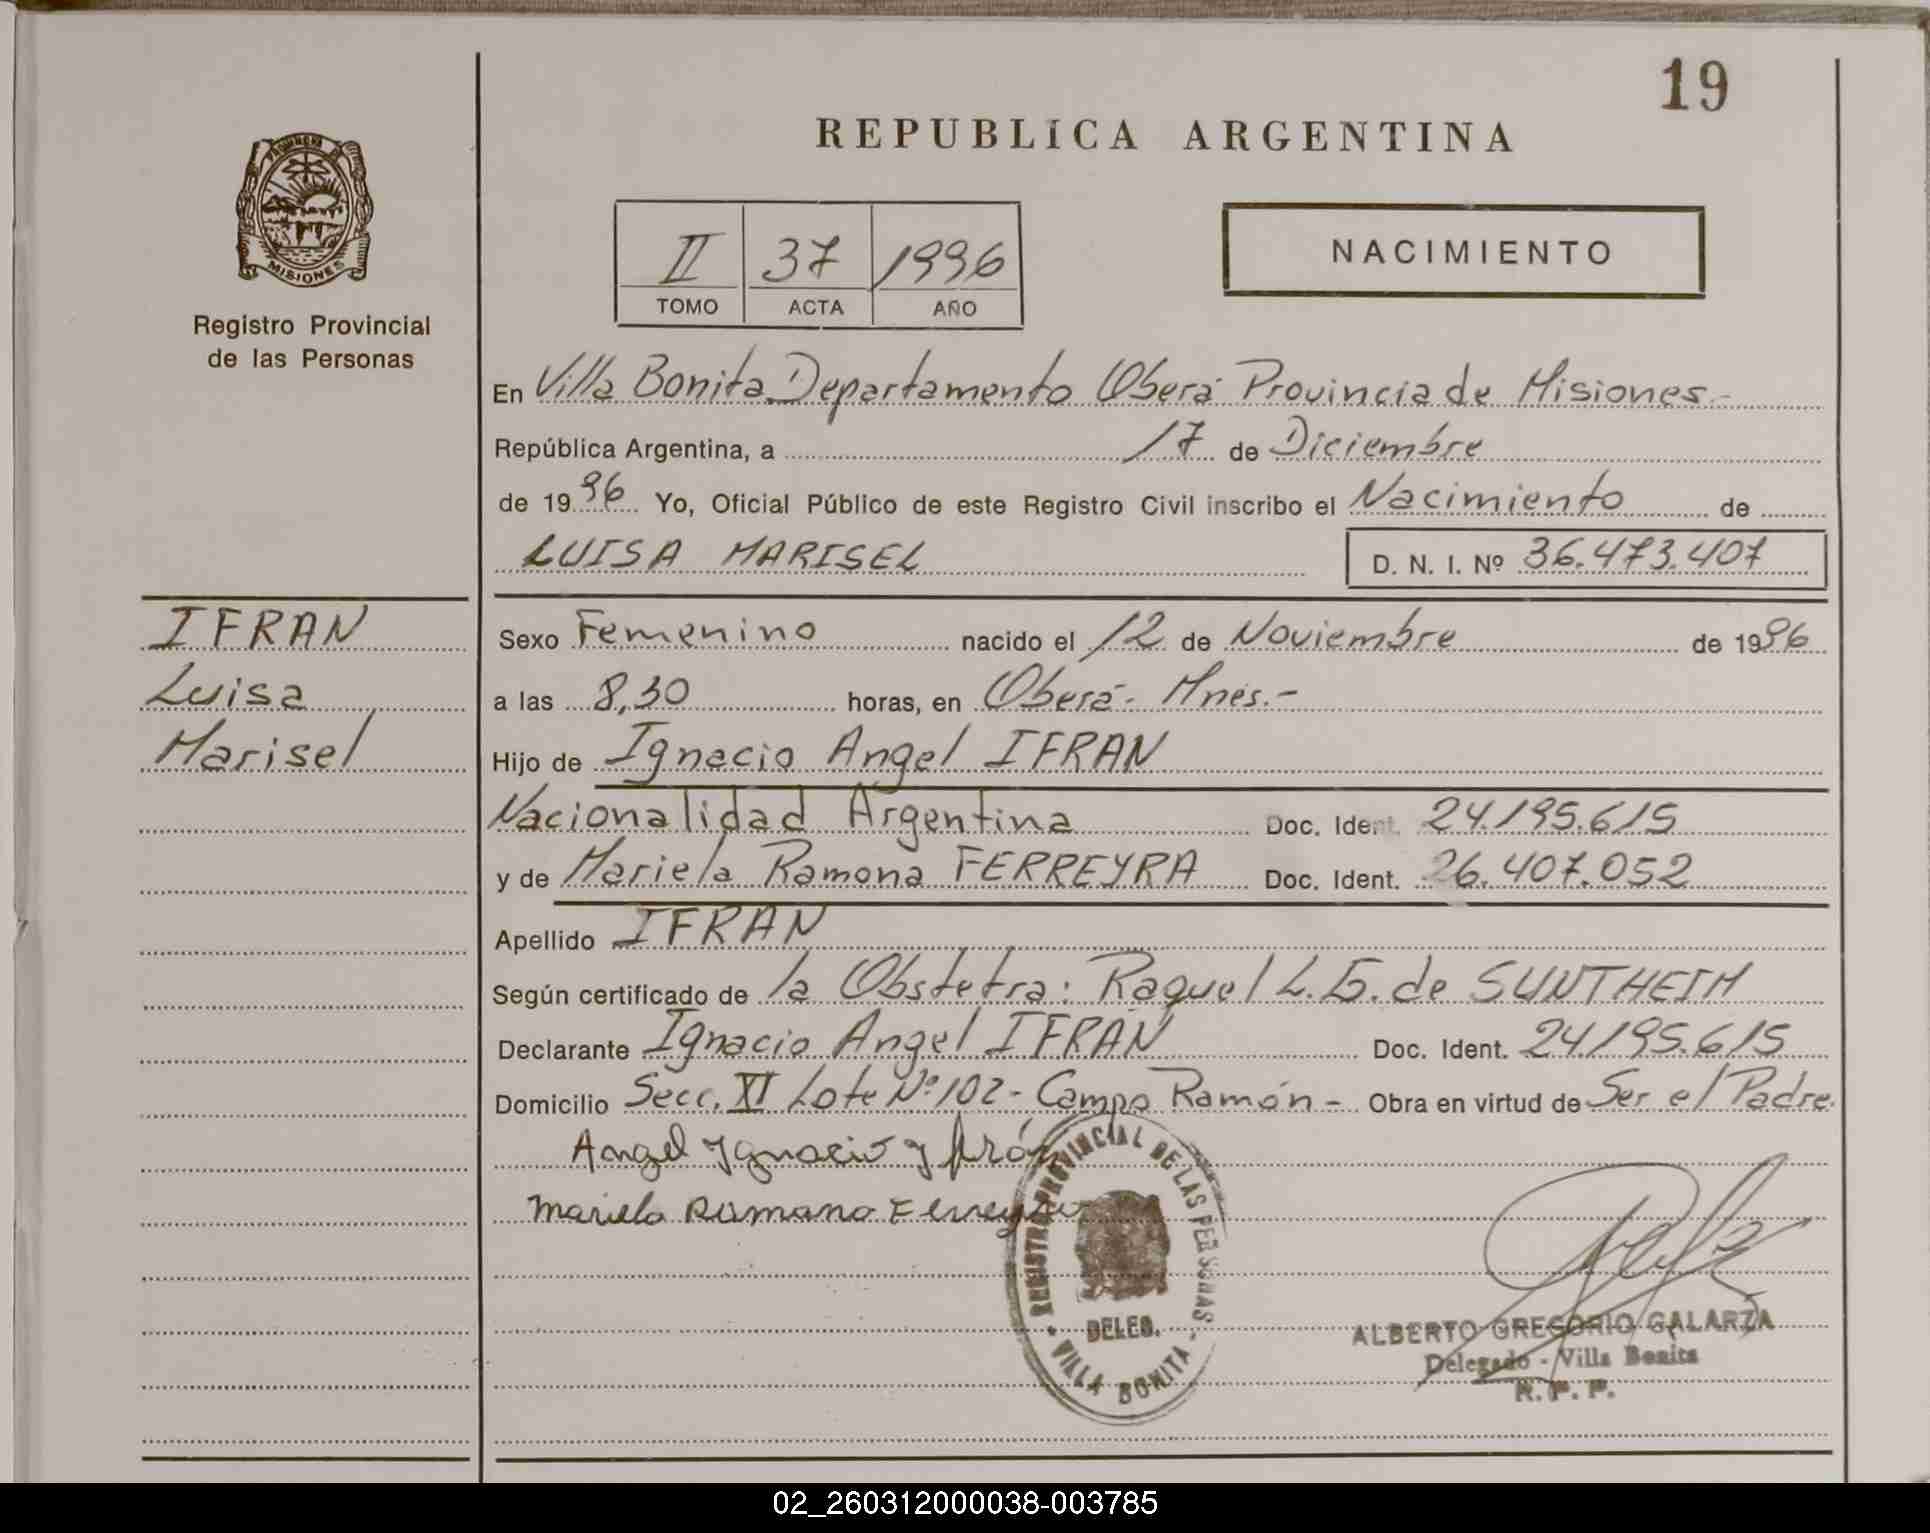 19
REPUBLICA ARGENTINA
PROVINCIA DE
MISIONES
Registro Provincial
de las Personas
II 37 1996
TOMO ACTA AÑO
NACIMIENTO
En Villa Bonita Departamento Oberá Provincia de Misiones.-
República Argentina, a 17 de Diciembre
de 1996 Yo, Oficial Público de este Registro Civil inscribo el Nacimiento de
LUISA MARISEL D. N. I. Nº 36.473.407
IFRAN
Luisa
Marisel
Sexo Femenino nacido el 12 de Noviembre de 1996
a las 8,30 horas, en Oberá- Mnes.-
Hijo de Ignacio Angel IFRAN
Nacionalidad Argentina Doc. Ident. 24.195.615
y de Mariela Ramona FERREYRA Doc. Ident. 26.407.052
Apellido IFRAN
Según certificado de la Obstetra: Raquel L. G. de SUNTHEIM
Declarante Ignacio Angel IFRAN Doc. Ident. 24.195.615
Domicilio Secc. XI Lote Nº 102 - Campo Ramón - Obra en virtud de Ser el Padre.
Angel Ygnacio
Mariela Ramona Ferreyra
REGISTRO PROVINCIAL DE LAS PERSONAS
DELEG.
VILLA BONITA
ALBERTO GREGORIO GALARZA
Delegado - Villa Bonita
R. P. P.
02_260312000038-003785